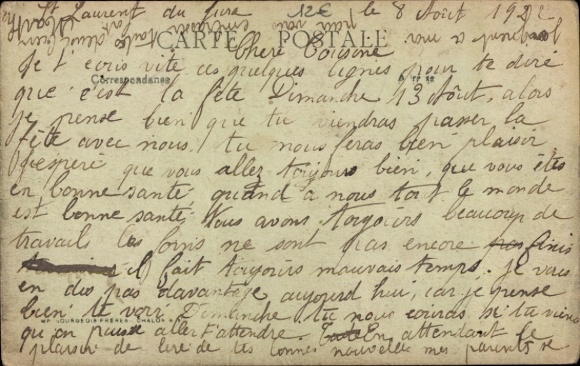 St Laurent du Jura le 8 Août 1922
12€
CARTE POSTALE
Chère Cousine
Je t'écris vite ces quelques lignes pour te dire
Correspondance
que c'est la fête Dimanche 13 Août, alors
je pense bien que tu viendras passer la
fête avec nous. tu nous feras bien plaisir
J'espère que vous allez toujours bien, que vous êtes
en bonne santé quand à nous tout le monde
est bonne santé. Nous avons toujours beaucoup de
travails les foins ne sont pas encore finis
il fait toujours mauvais temps. Je vous
en dis pas davantage aujourd'hui, car je pense
bien te voir Dimanche. tu nous écriras si tu viens
BOURGEOIS FRERES CHALON
qu'on puisse aller t'attendre. En attendant le
plaisir de lire de tes bonnes nouvelles mes parents se